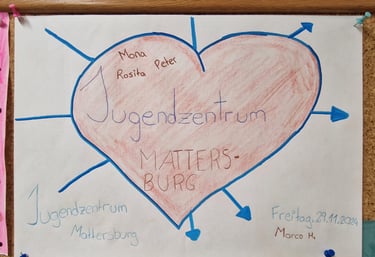 Mona
Rosita Peter
Jugendzentrum
MATTERS-
BURG
Jugendzentrum
Mattersburg
Freitag, 29.11.2024
Marco H.